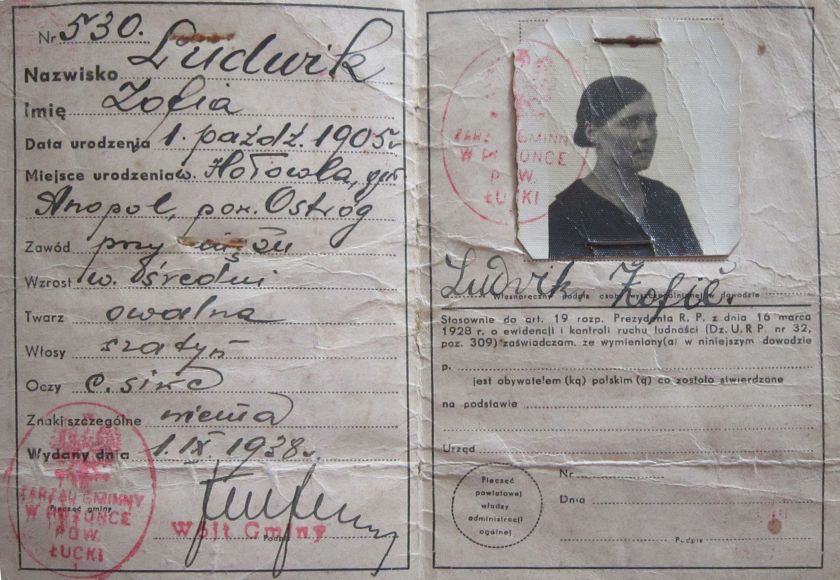 Nr 530.
Nazwisko Ludwik
Imię Zofia
Data urodzenia 1. paźdź. 1905r
Miejsce urodzenia w. Hołowla, gm
Anopol, pow. Ostróg
Zawód przy mężu
Wzrost w. średni
Twarz owalna
Włosy szatyn
Oczy c. siwe
Znaki szczególne niema
Wydany dnia 1. IX 1938r.
Pieczęć gminy
ZARZĄD GMINNY
POW.
ŁUCKI
Wójt Gminy
Podpis
ZARZĄD GMINNY
POW.
ŁUCKI
Ludwik Zofia
Własnoręczny podpis osoby wyszczególnionej w dowodzie
Stosownie do art. 19 rozp. Prezydenta R. P. z dnia 16 marca
1928 r. o ewidencji i kontroli ruchu ludności (Dz. U. R P. nr 32,
poz. 309) zaświadczam, że wymieniony(a) w niniejszym dowodzie
p.
jest obywatelem (ką) polskim (ą) co zostało stwierdzone
na podstawie
Urząd
Pieczęć
powiatowej
władzy
administracji
ogólnej
Nr
Dnia
Podpis